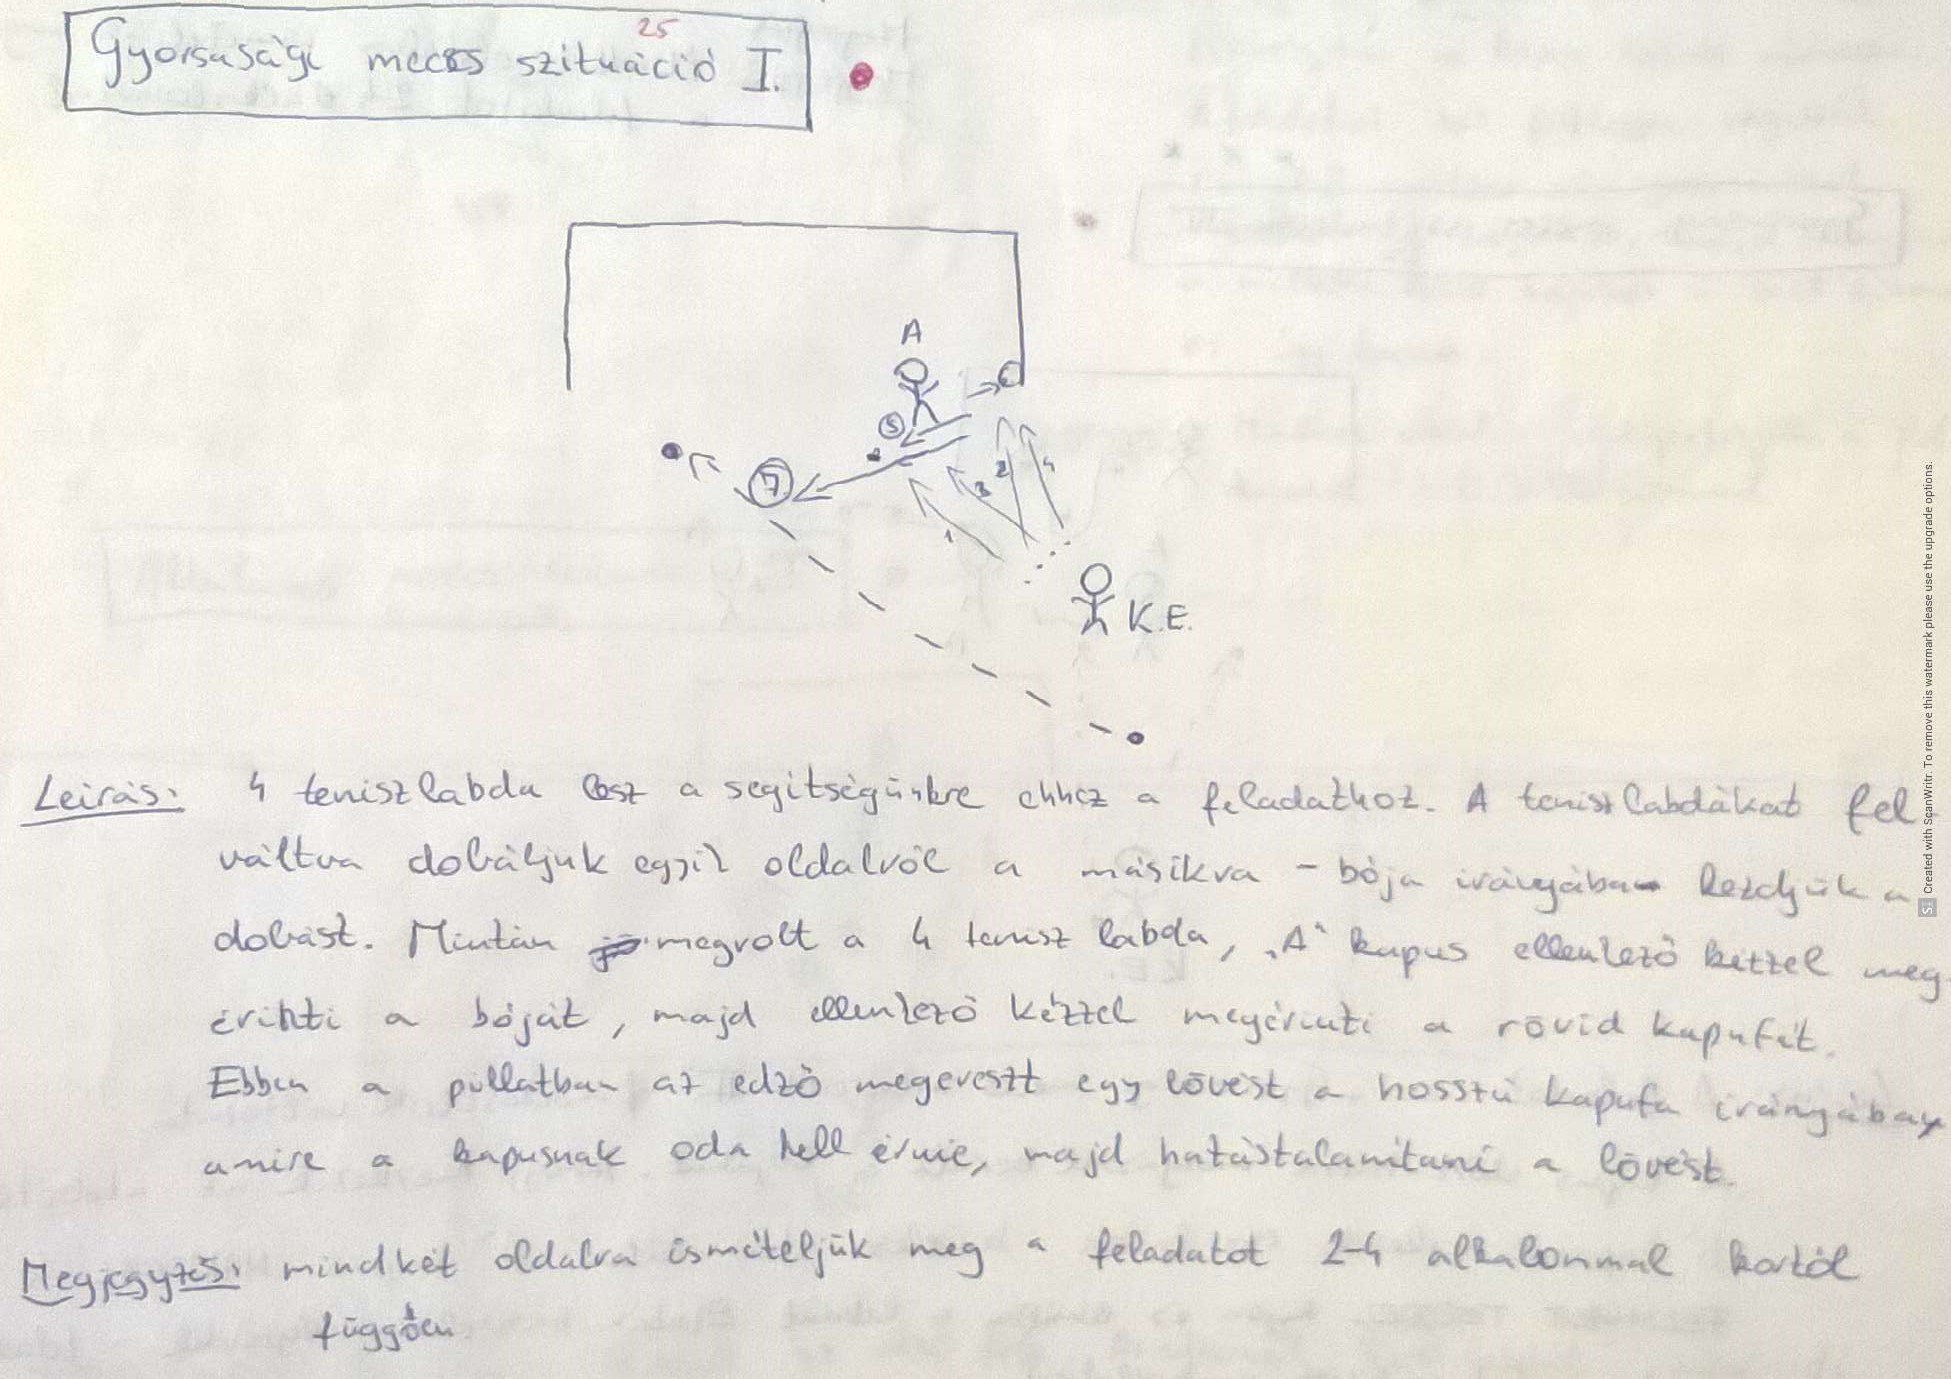 25
Gyorsasági meccs szituáció I.
A
5
7
1
3
2
4
K.E.
Leírás: 4 teniszlabda lesz a segítségünkre ehhez a feladathoz. A teniszlabdákat fel-
váltva dobáljuk egyik oldalról a másikra - bója irányába kezdjük a
dobást. Miután megvolt a 4 tenisz labda, "A" kapus ellenkező kézzel meg-
érinti a bóját, majd ellenkező kézzel megérinti a rövid kapufát.
Ebben a pillatban az edző megereszt egy lövést a hosszú kapufa irányába,
amire a kapusnak oda kell érnie, majd hatástalanítani a lövést.
Megjegyzés: mindkét oldalra ismételjük meg a feladatot 2-4 alkalommal kortól
függően
Created with ScanWritr. To remove this watermark please use the upgrade options.